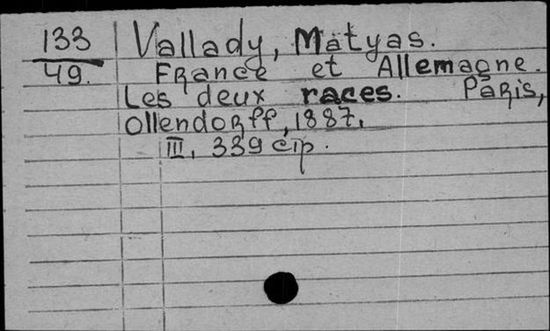 133 Vallady, Matyas.
49. France et Allemagne.
Les deux races. Paris,
Ollendorff, 1887.
III, 339 cip.